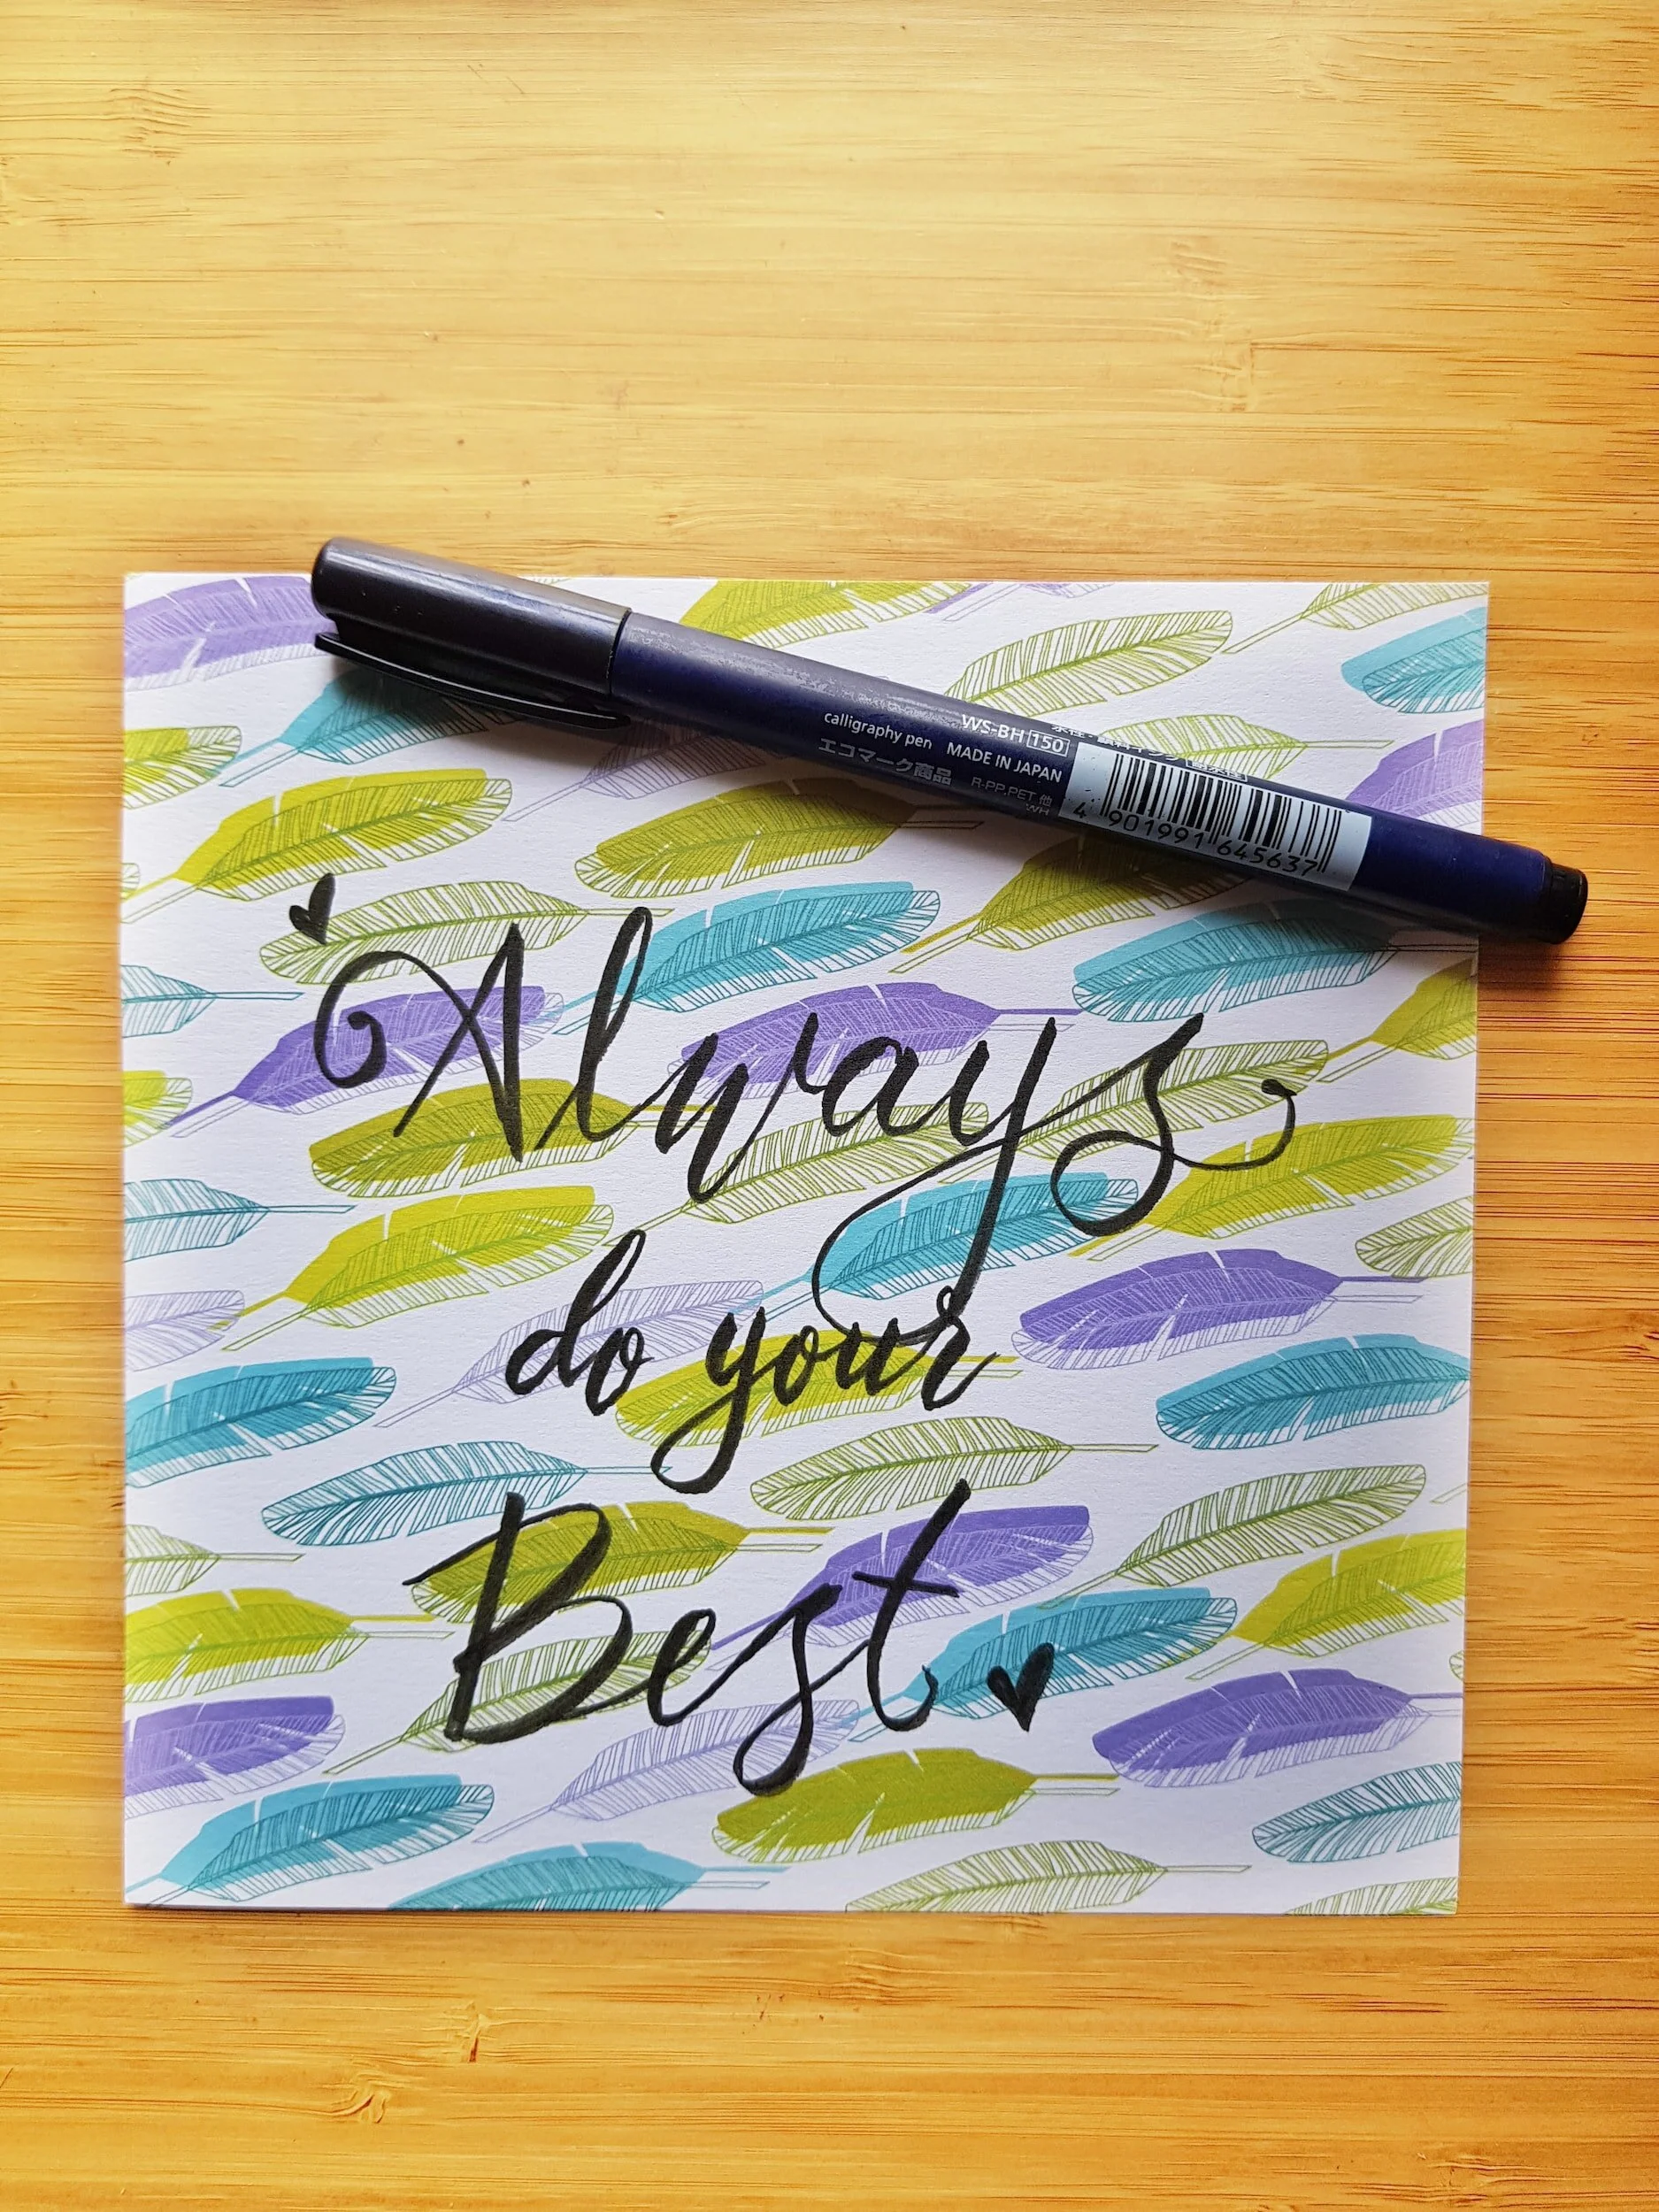 calligraphy pen MADE IN JAPAN
WS-BH 150
エコマーク商品
R-PP,PET 他
WH
4 901991 645637
Always
do your
Best